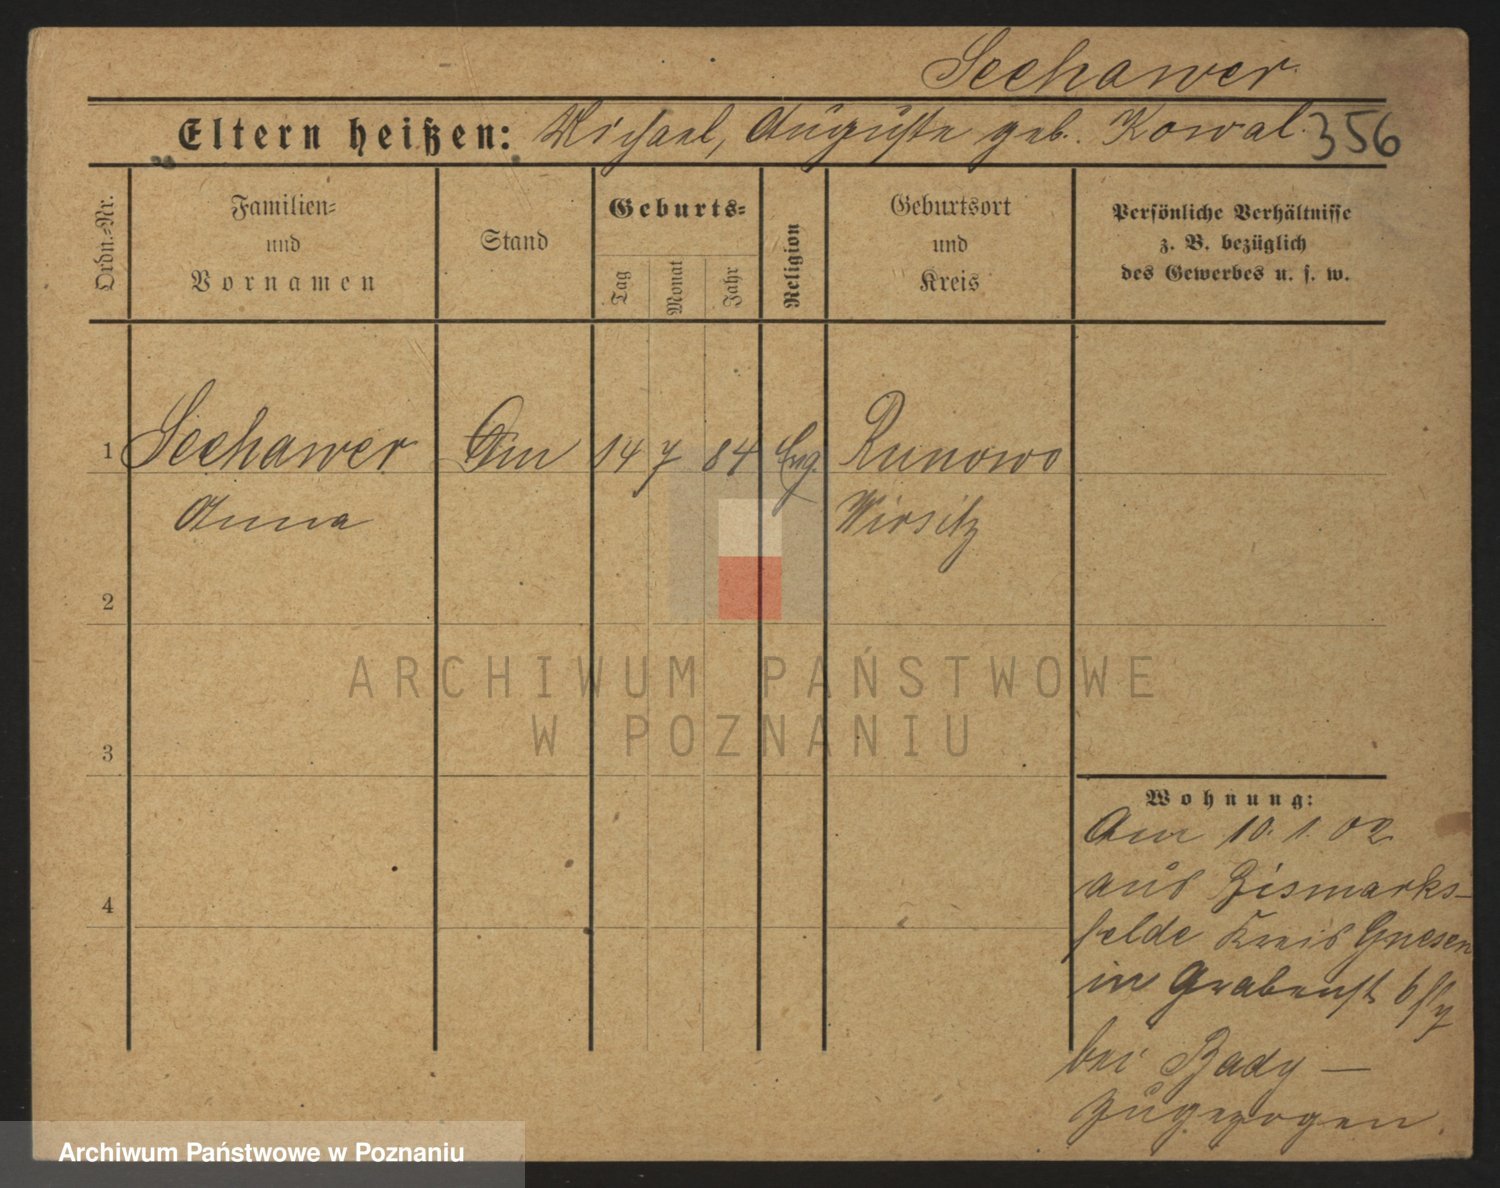 Seehawer
Eltern heißen: Michael, Auguste geb. Kowal. 356
Ordn.-Nr.
Familien-
und
Vornamen
Stand
Geburts-
Tag
Monat
Jahr
Religion
Geburtsort
und
Kreis
Persönliche Verhältnisse
z. B. bezüglich
des Gewerbes u. s. w.
1 Seehawer 14 7 84 Evg. Runowo
Anna Wirsitz
2
ARCHIWUM PAŃSTWOWE
W POZNANIU
3
Wohnung:
Am 10. 1. 02
aus Bismarks-
4
felde Kreis Gnesen
in Grabenst
bei Bady —
zugezogen.
Archiwum Państwowe w Poznaniu